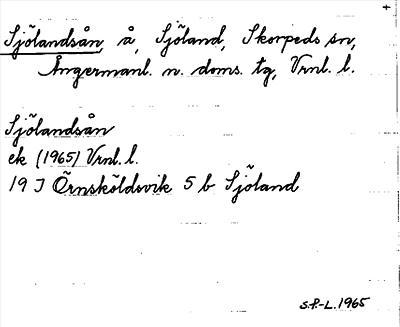 Sjölandsån, å, Sjöland, Skorpeds sn,
Ångermanl. n. doms. tg, Vrnl. l.
Sjölandsån
ek (1965) Vrnl. l.
19 J Örnsköldsvik 5 b Sjöland
S.P.-L. 1965